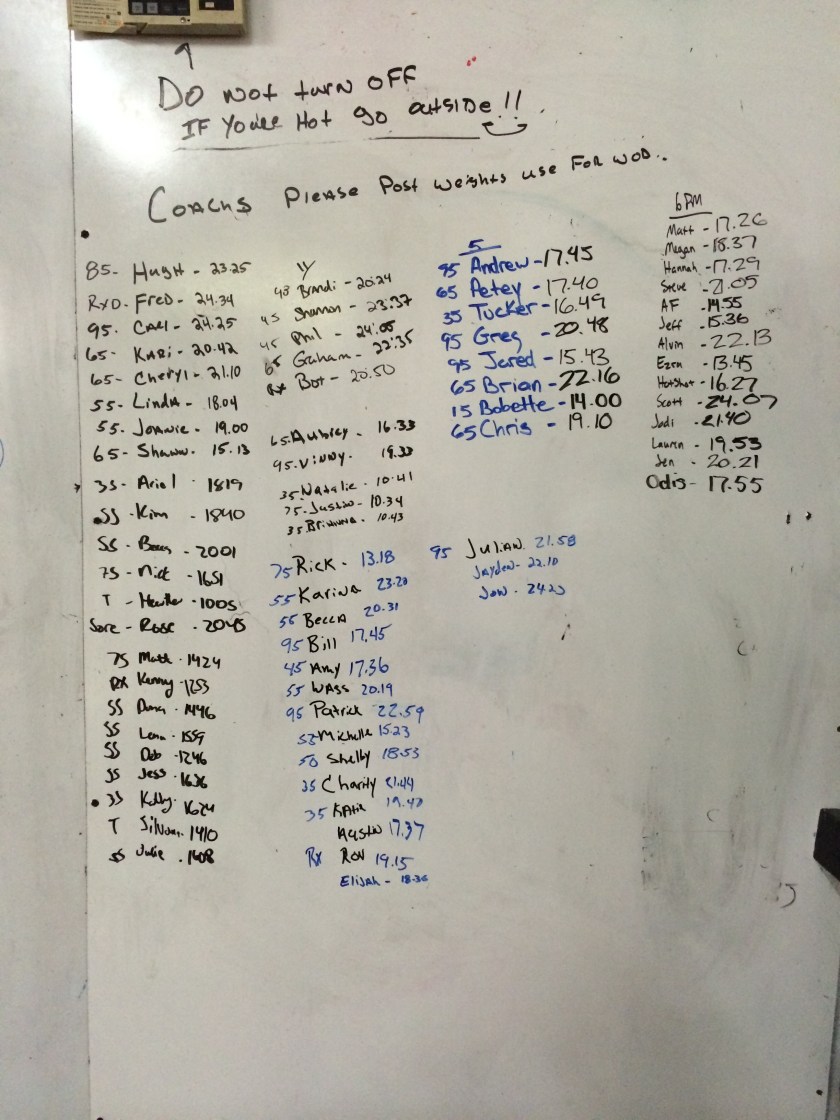 Do not turn off
IF You're Hot go outside!!
Coachs Please Post weights use For WOD..
85- Hugh - 23.25
RxD- Fred- 24.34
95. Carl - 24.25
65- Kari - 20.42
65- Cheryl - 21.10
55- Linda - 18.04
55. Joanie - 19.00
65- Shawn. - 15.13
35- Ariel - 1819
55 - Kim - 1840
55 - Becca - 2001
75 - Nick - 1651
T - Heather - 1005
Rose - 2045
75 Matt - 1424
RX Kenny - 1253
55 - 1446
55 Lena - 1559
55 Deb - 1246
55 Jess - 1636
35 Kelly - 1624
T 1410
55 Julie - 1408
43 Brandi - 20.24
45 Shannon - 23.37
45 Phil - 24.05
65 Graham - 22.35
Rx Bot - 20.50
65. Aubrey - 16.33
95. Vinny.
35 Natalie - 10.41
75. Justin - 10.34
35 Brianna - 10.43
75 Rick - 13.18
55 Karina 23.20
55 Becca 20.31
95 Bill 17.45
45 Amy 17.36
55 Wass 20.19
95 Patrick 22.59
53 Michelle 15.23
50 Shelby 18.53
35 Charity 21.44
35 Katie 19.47
Austin 17.37
Rx Ron 19.15
Elijah - 18.36
5
95 Andrew - 17.45
65 Petey - 17.40
35 Tucker - 16.49
95 Greg - 20.48
95 Jared - 15.43
65 Brian - 22.16
15 Bobette - 14.00
65 Chris - 19.10
95 Julian. 21.58
Jayden - 22.10
Jon. 24.23
6PM
Matt - 17.26
Megan - 18.37
Hannah - 17.29
Steve - 21.05
AF - 14.55
Jeff - 15.36
Alvin - 22.13
Ezra - 13.45
Hotshot - 16.27
Scott - 24.07
Judi - 21.40
Lauren - 19.53
Jen - 20.21
Odis - 17.55